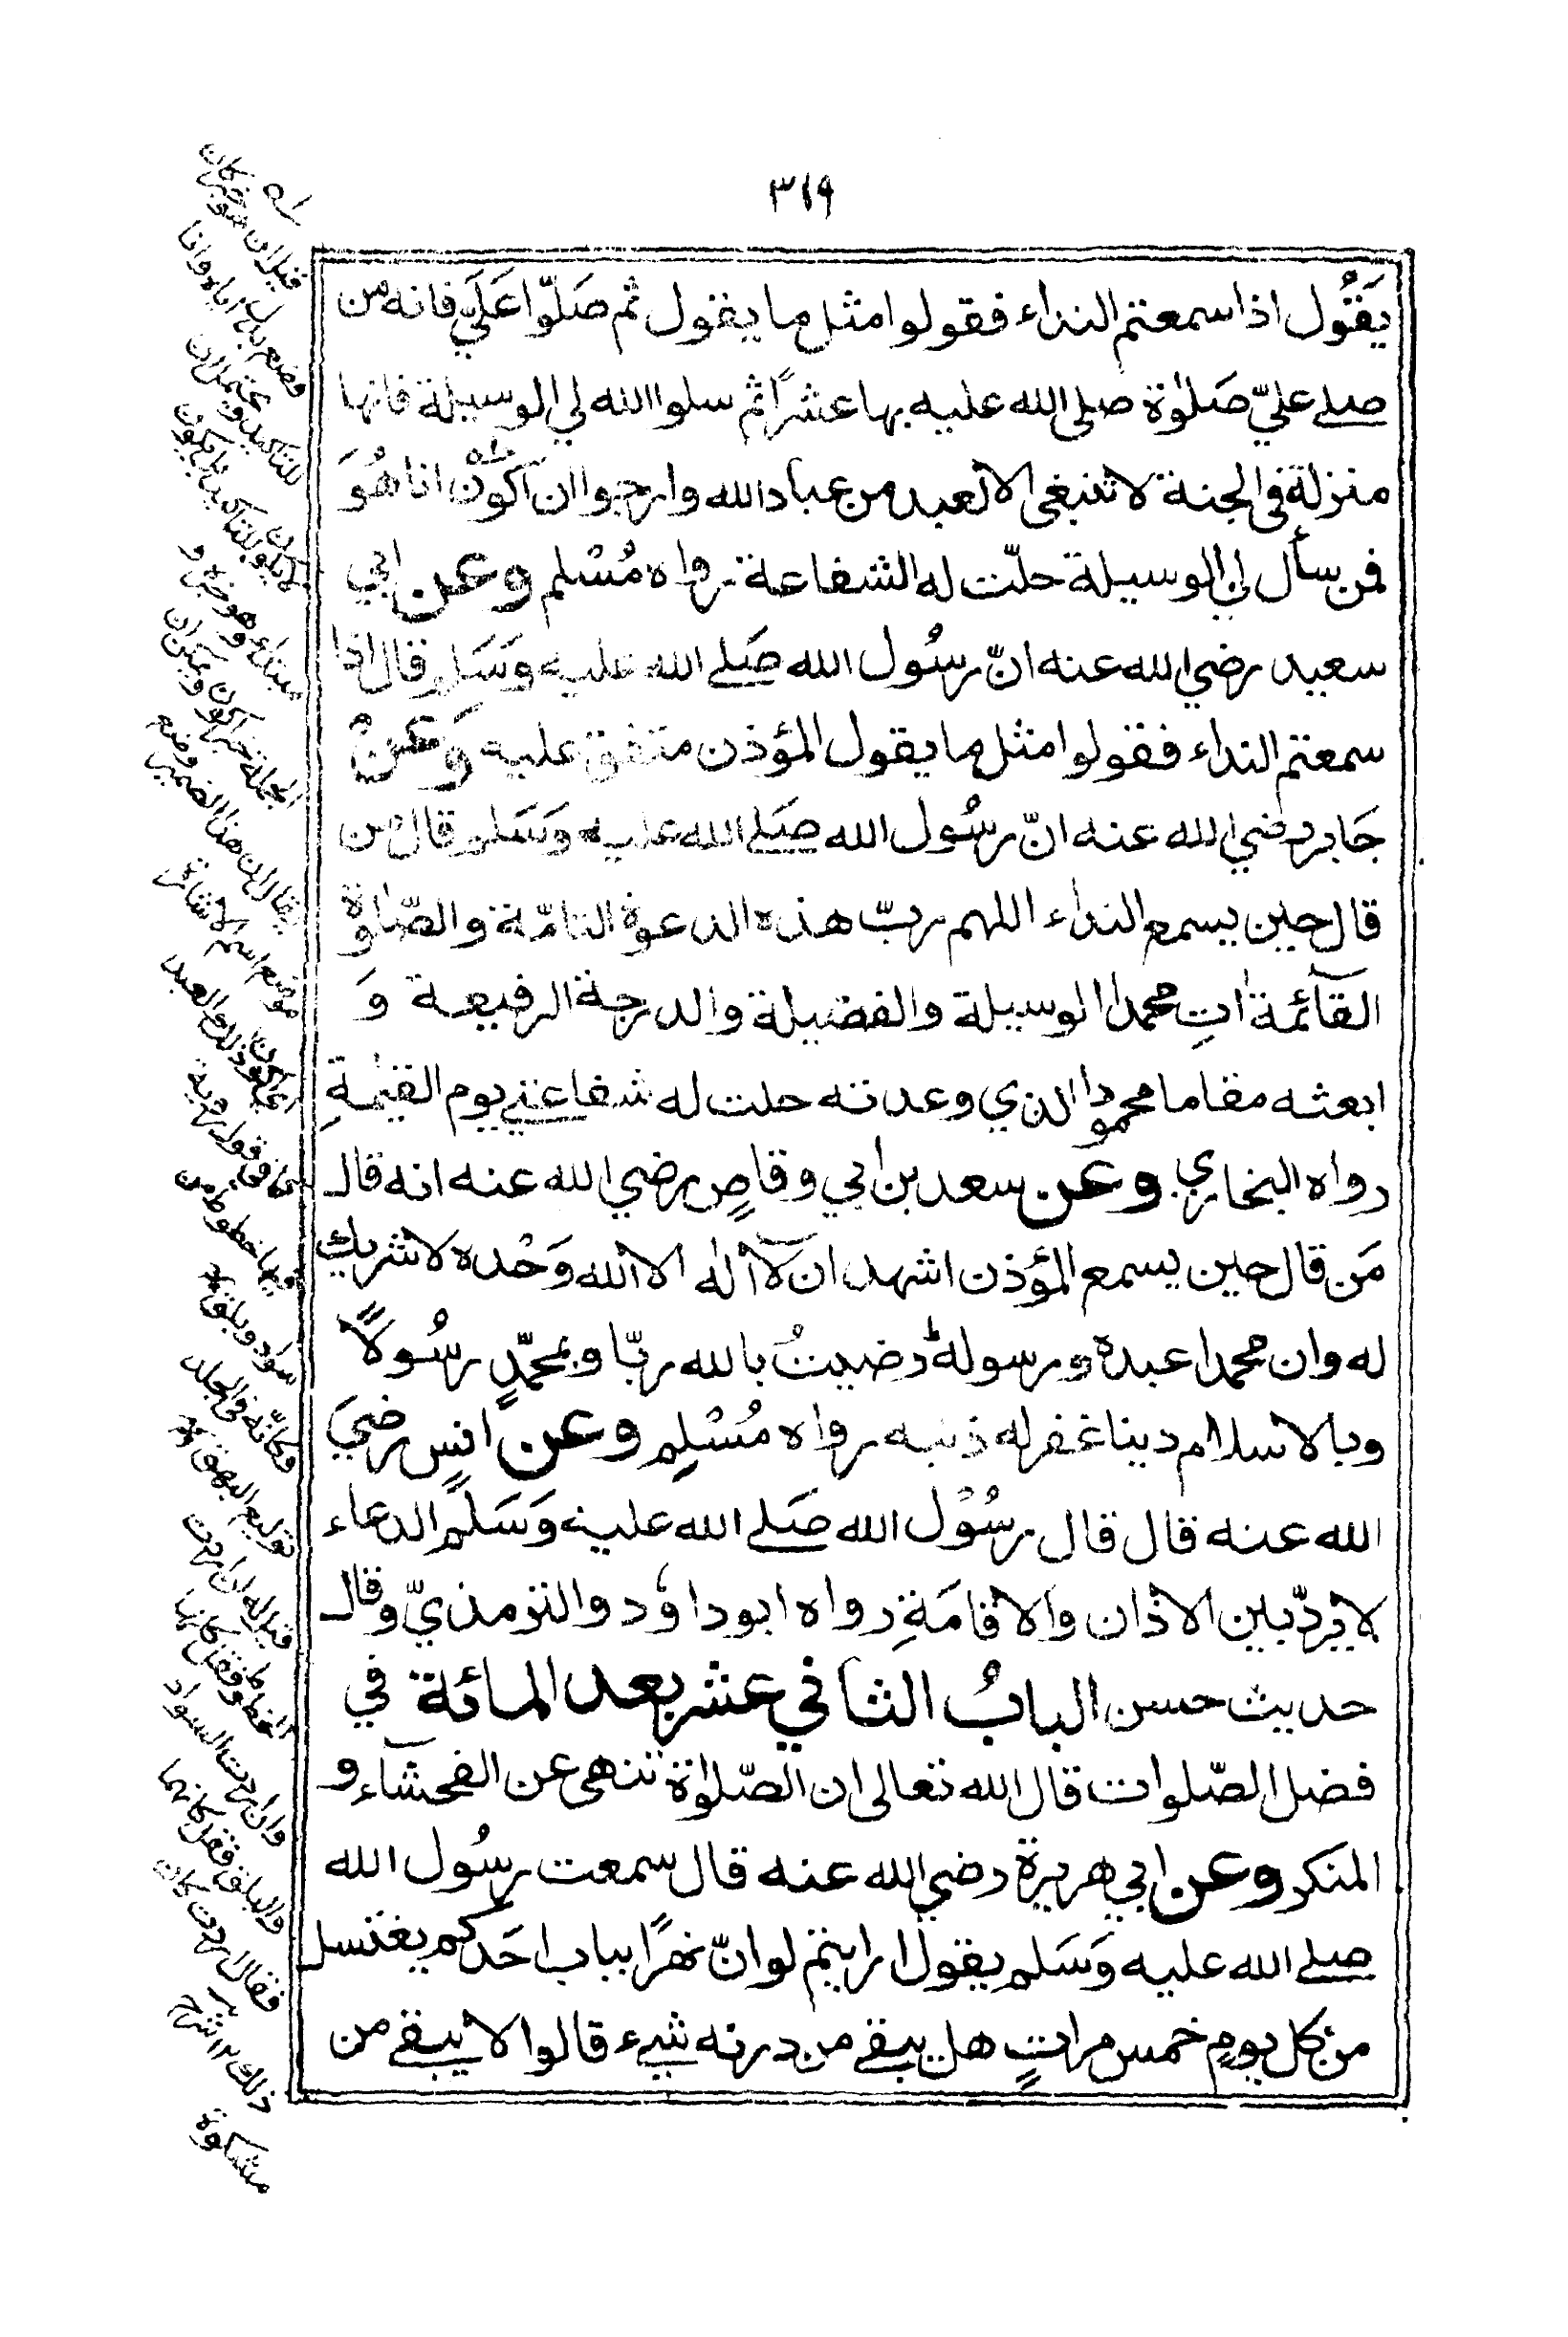 ٣١٩
يَقُول اذا سمعتم النداء فقولوا مثل ما يقول ثم صَلّوا عَلَيّ فانه من
صلے عليّ صَلوٰة صلى الله عليه بها عشرًا ثم سلوا الله لي الوسيلة فانها
منزلة فى الجنة لا تنبغى الا لعبد من عباد الله وارجوا ان اكون انا هُوَ
فمن سأل لي الوسيلة حلّت له الشفاعة رواه مُسْلم وعن ابي
سعيد رضي الله عنه انّ رسُول الله صَلے الله عليه وَسَلم قال اذا
سمعتم النداء فقولوا مثل ما يقول المؤذن متفق عليه وَعَنْ
جَابر رضي الله عنه انّ رسُول الله صَلے الله عليه وَسَلم قال من
قال حين يسمع النداء اللهم ربّ هذه الدعوة التامّة والصّلوٰة
القآئمة اٰتِ محمدا الوسيلة والفضيلة والدرجة الرفيعة وَ
ابعثه مقاما محمودا الذي وعدته حلت له شفاعتے يوم القيٰمةِ
رواه البخاري وعن سعد بن ابي وقاصٍ رضي الله عنه انه قال
مَن قال حين يسمع المؤذن اشهد ان لآ اله الا الله وَحْده لا شريك
له وان محمدا عبده ورسوله رضيتُ بالله ربّا وبمحمّدٍ رسُولاً
وبالاسلام دينا غفر له ذنبه رواه مُسْلِم وعن انسٍ رضيَ
الله عنه قال قال رسُوْل الله صَلے الله عليه وَسَلّم الدعاء
لا يردّ بين الاذان والاقامَةِ رواه ابوداؤد والترمذيّ وقال
حديث حسن البابُ الثاني عشر بعد المائة في
فضل الصّلوات قال الله تعالى ان الصّلوٰة تنهى عن الفحشآء و
المنكر وعن ابي هريرة رضي الله عنه قال سمعت رسُول الله
صلے الله عليه وَسَلم يقول ارايتم لو انّ نهرًا بباب احَدكم يغتسل
من كل يومٍ خمس مراتٍ هل يبقے من درنه شيء قالوا لا يبقے من
قيل ان هو خبر كان
وضع بدل اياه وانا
للتاكيد ويحتمل ان
لا يكون للتاكيد بل يكون
مبتداء وهو خبره و
الجملة خبر اكون ويمكن ان
يقال ان هذا الضمير وضع
موضع اسم الاشارة
اى اكون ذلك العبد
كما فى قول روبة
فيها خطوط من
سواد وبلق
كانّه فى الجلد
توليع البهق
قيل له ان اردت
الخطوط فقل كانها
وان اردت السواد
والبلق فقل كانهما
فقال اردت كان
ذلك ١٢ شرح
مشكوة